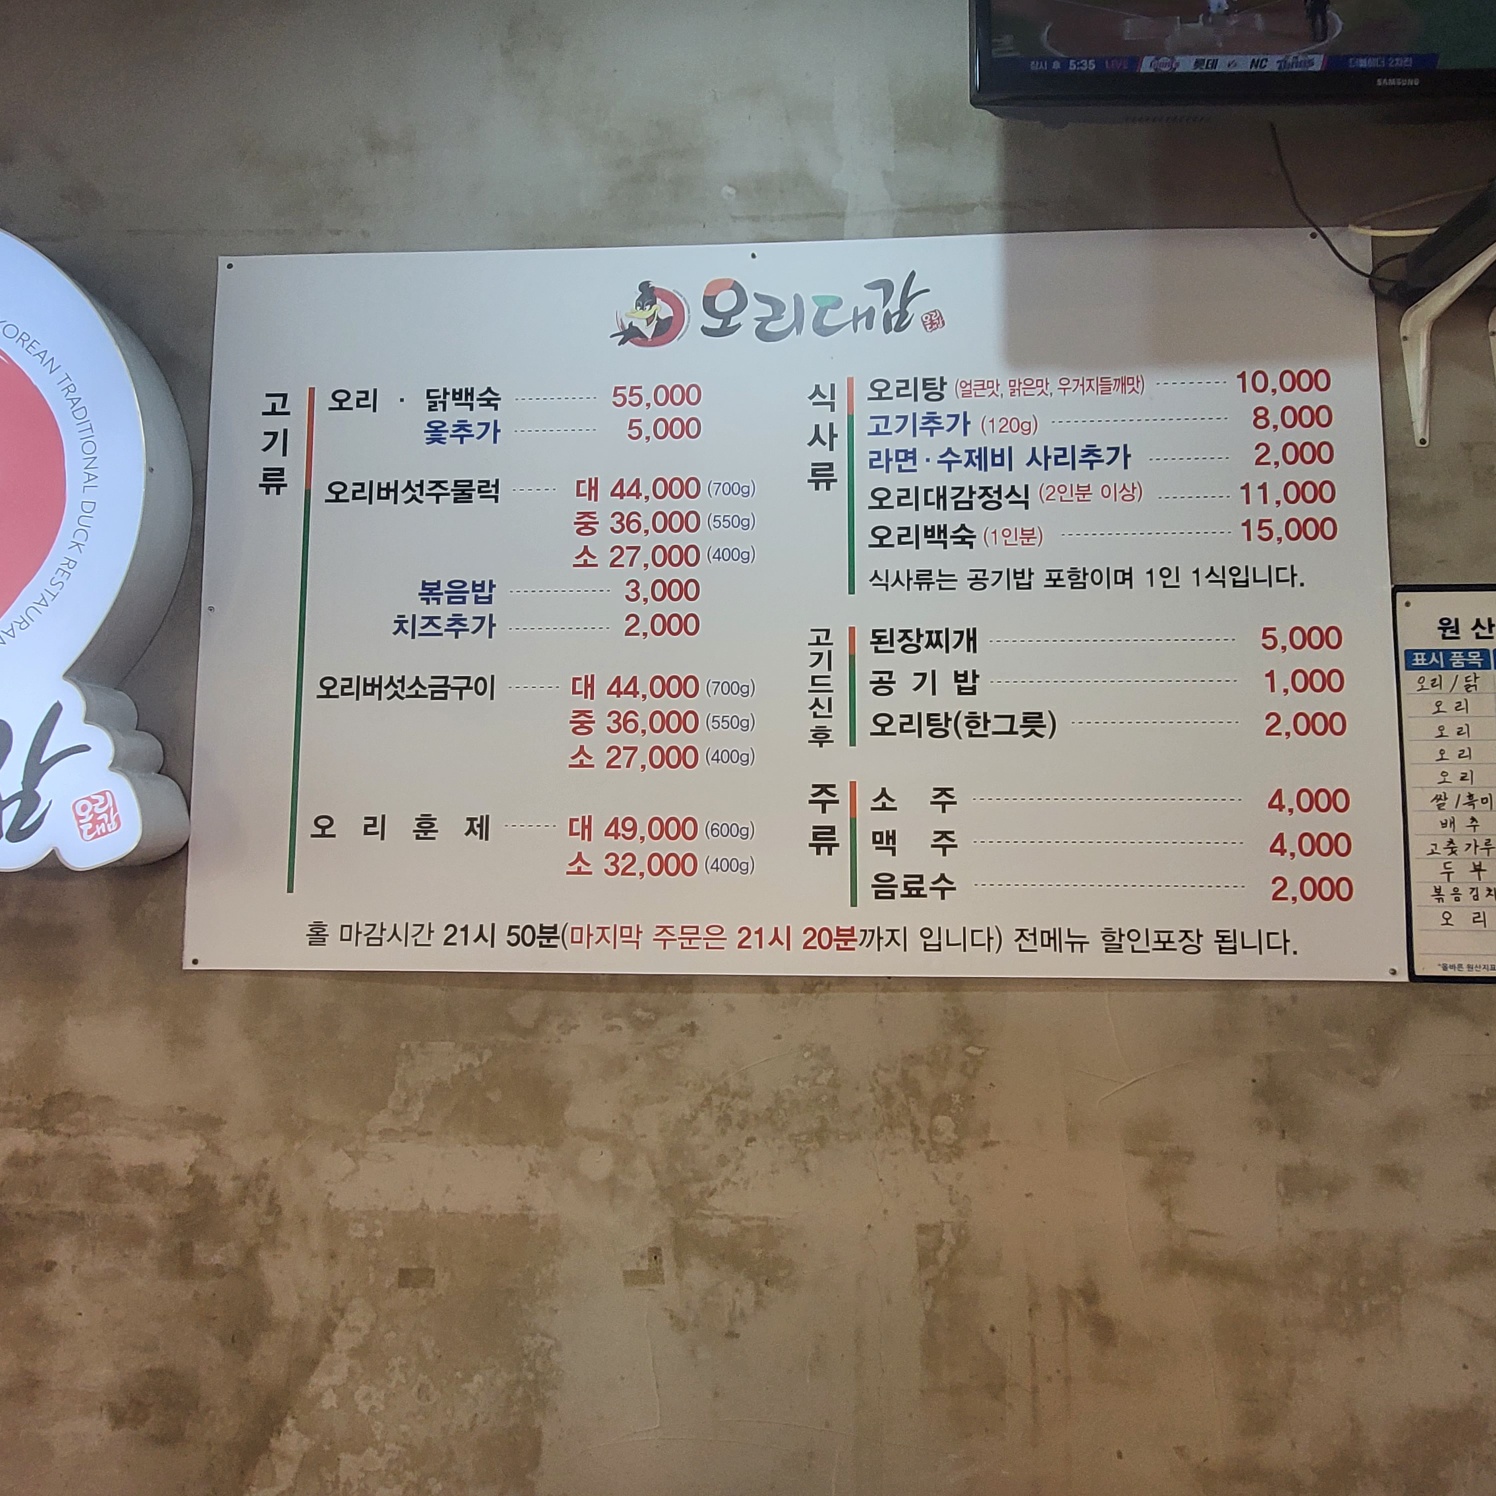 잠시 후 5:35 LIVE 롯데 vs NC 더블헤더 2차전
SAMSUNG
KOREAN TRADITIONAL DUCK RESTAURAN
감
오리대감
오리대감
고기류
오리 · 닭백숙 55,000
옻추가 5,000
오리버섯주물럭 대 44,000 (700g)
중 36,000 (550g)
소 27,000 (400g)
볶음밥 3,000
치즈추가 2,000
오리버섯소금구이 대 44,000 (700g)
중 36,000 (550g)
소 27,000 (400g)
오 리 훈 제 대 49,000 (600g)
소 32,000 (400g)
식사류
오리탕 (얼큰맛, 맑은맛, 우거지들깨맛) 10,000
고기추가 (120g) 8,000
라면·수제비 사리추가 2,000
오리대감정식 (2인분 이상) 11,000
오리백숙 (1인분) 15,000
식사류는 공기밥 포함이며 1인 1식입니다.
고기드신후
된장찌개 5,000
공 기 밥 1,000
오리탕(한그릇) 2,000
주류
소 주 4,000
맥 주 4,000
음료수 2,000
홀 마감시간 21시 50분(마지막 주문은 21시 20분까지 입니다) 전메뉴 할인포장 됩니다.
원 산
표시 품목
오리 / 닭
오 리
오 리
오 리
오 리
쌀 / 흑미
배 추
고춧가루
두 부
볶음김치
오 리
"올바른 원산지표